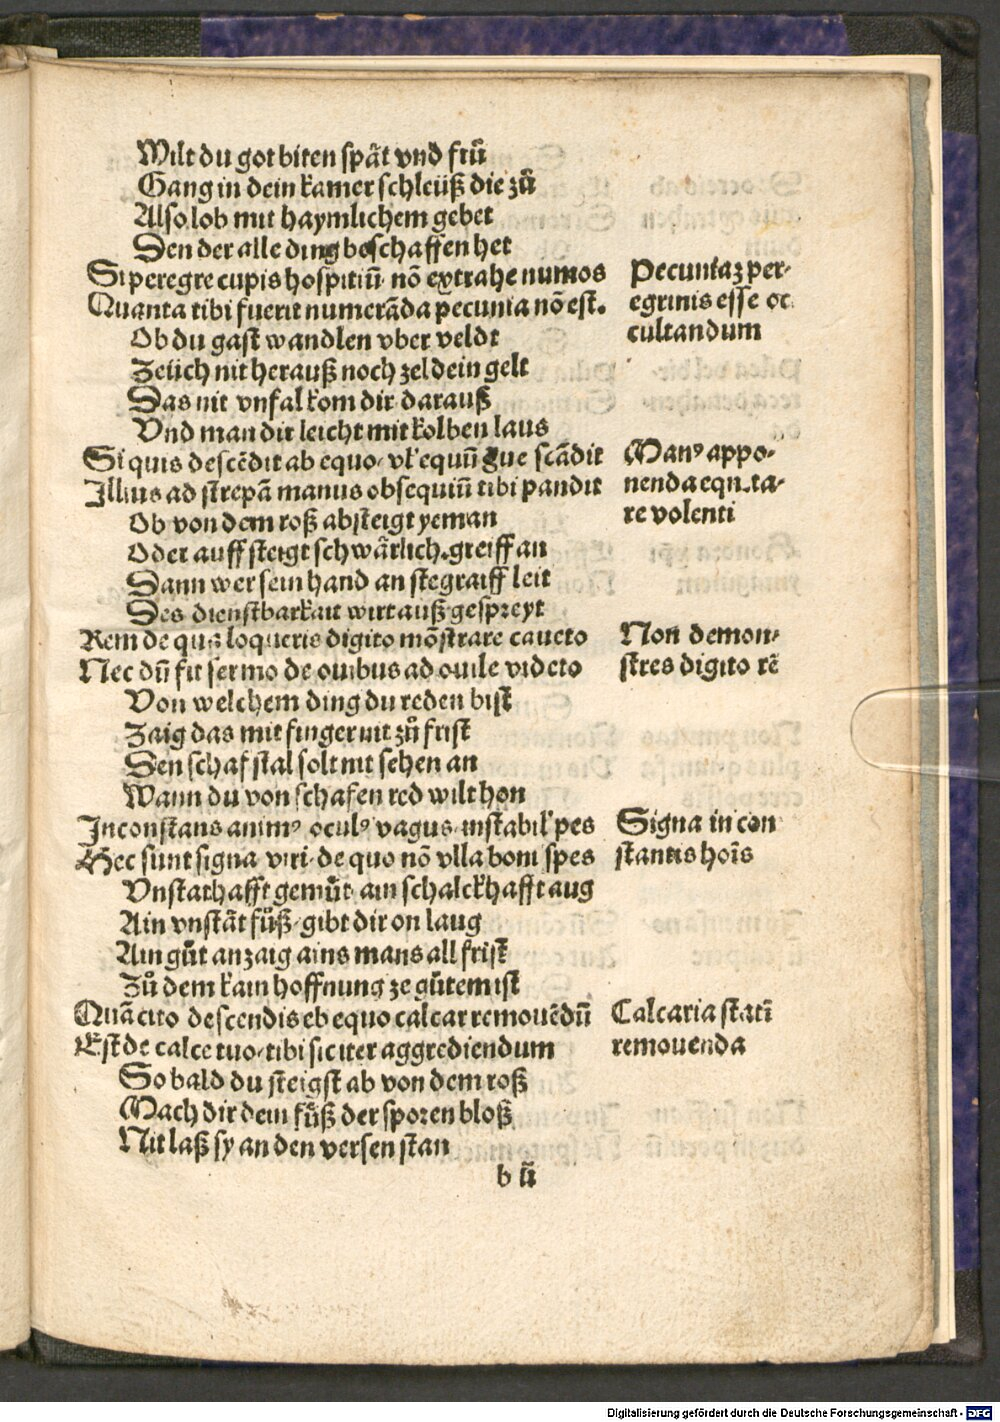 Wilt du got biten spät vnd frů
Gang in dein kamer schleüß die zů
Also lob mit haymlichem gebet
Den der alle ding beschaffen het
Si peregre cupis hospitiū nō extrahe numos
Quanta tibi fuerit numerāda pecunia nō est.
Ob du gast wandlen vber veldt
Zeüch nit herauß noch zel dein gelt
Das nit vnfal kom dir darauß
Vnd man dir leicht mit kolben laus
Si quis descēdit ab equo vl' equū sue scādit
Illius ad strepā manus obsequiū tibi pandit
Ob von dem roß absteigt yeman
Oder auff steigt schwärlich greiff an
Dann wer sein hand an stegraiff leit
Des dienstbarkait wirt auß gespreyt
Rem de qua loqueris digito mōstrare caueto
Nec dū fit sermo de ouibus ad ouile videto
Von welchem ding du reden bist
Zaig das mit finger nit zů frist
Den schaf stal solt nit sehen an
Wann du von schafen red wilt hon
Inconstans animꝰ oculꝰ vagus instabil' pes
Hec sunt signa viri de quo nō vlla boni spes
Vnstathafft gemůt ain schalckhafft aug
Ain vnstät fůß gibt dir on laug
Ain gůt anzaig ains mans all frist
Zů dem kain hoffnung ze gůtem ist
Quā cito descendis eb equo calcar remouēdū
Est de calce tuo tibi sic iter aggrediendum
So bald du steigst ab von dem roß
Mach dir dein fůß der sporen bloß
Nit laß sy an den versen stan
b ij
Pecuniaʒ per-
egrinis esse oc
cultandum
Manꝰ appo-
nenda equita-
re volenti
Non demon-
stres digito rē
Signa in con
stantis hoīs
Calcaria statī
remouenda
Digitalisierung gefördert durch die Deutsche Forschungsgemeinschaft - DFG